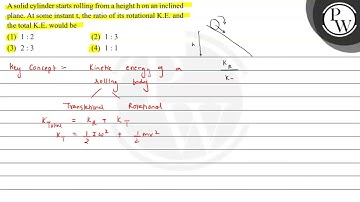 A solid cylinder starts rolling from a height h on an inclined
plane. At some instant t, the ratio of its rotational K.E. and
the total K.E. would be
(1) 1 : 2 (2) 1 : 3
(3) 2 : 3 (4) 1 : 1
h
PW
Key Concept :- Kinetic energy of a
rolling body
K_R
K
Translational Rotational
K_Total = K_R + K_T
K_T = 1/2 Iω² + 1/2 mv²